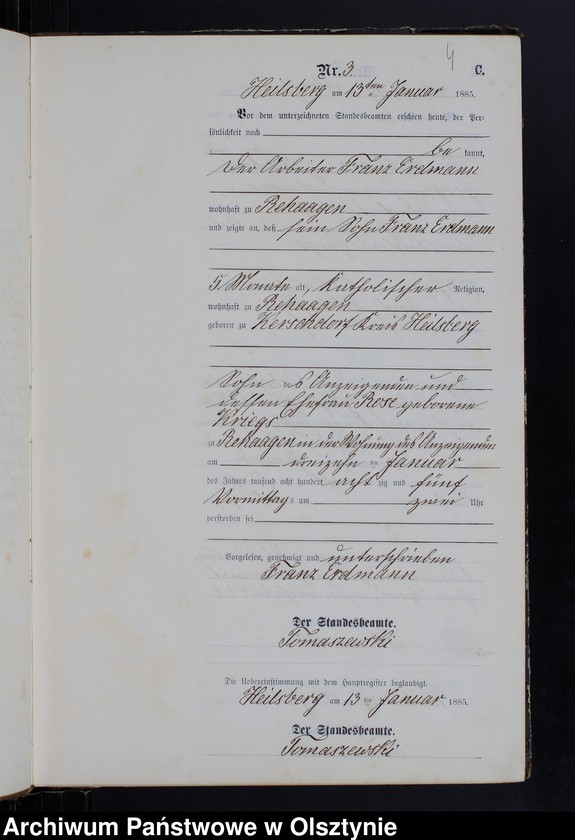 4
Nr. 3. C.
Heilsberg am 13ten Januar 1885.
Vor dem unterzeichneten Standesbeamten erschien heute, der Per-
sönlichkeit nach
be kannt,
der Arbeiter Franz Erdmann
wohnhaft zu Rehaagen
und zeigte an, daß sein Sohn Franz Erdmann
5 Monate alt, katholischer Religion,
wohnhaft zu Rehaagen
geboren zu Kerschdorf Kreis Heilsberg
Sohn des Anzeigenden und
dessen Ehefrau Rose geborene
Kriegs
zu Rehaagen in der Wohnung des Anzeigenden
am dreizehn ten Januar
des Jahres tausend acht hundert acht zig und fünf
Vormittag s um zwei Uhr
verstorben sei
Vorgelesen, genehmigt und unterschrieben
Franz Erdmann
Der Standesbeamte.
Tomaszewski
Die Uebereinstimmung mit dem Hauptregister beglaubigt.
Heilsberg am 13 ten Januar 1885.
Der Standesbeamte.
Tomaszewski
Archiwum Państwowe w Olsztynie